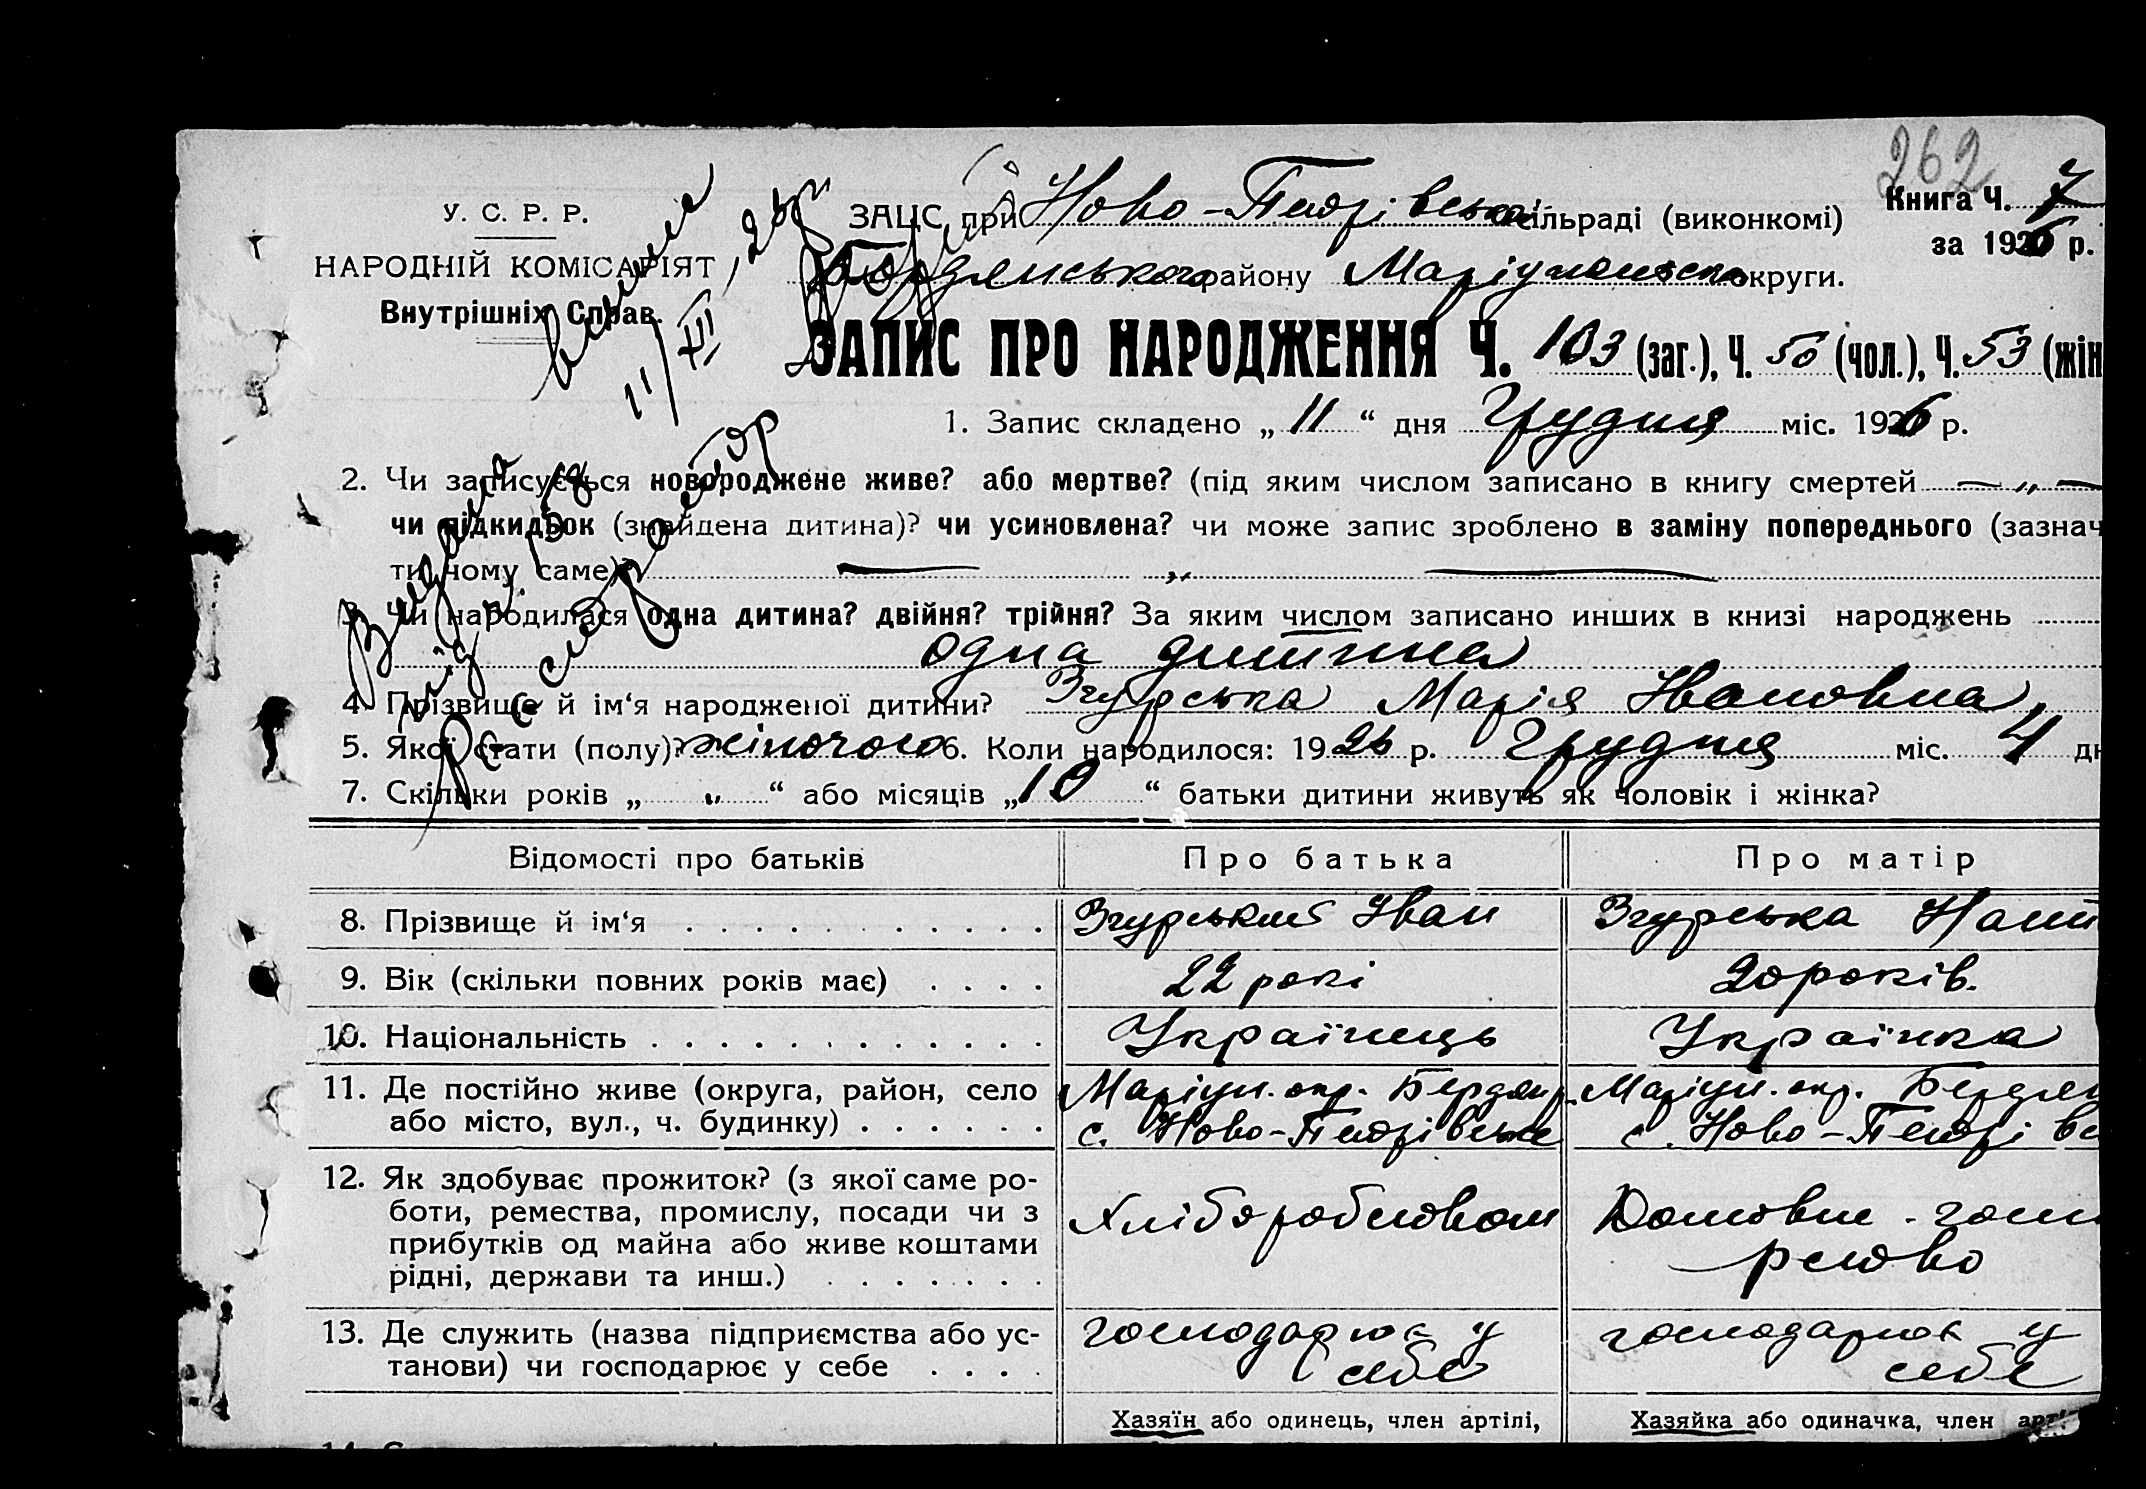 262
У. С. Р. Р.
НАРОДНІЙ КОМІСАРІЯТ
Внутрішніх Справ.
ЗАЦС при Ново-Петрівській сільраді (виконкомі)
Книга Ч. 7
за 1926 р.
Бердянського району Маріупольсько округи.
ЗАПИС ПРО НАРОДЖЕННЯ Ч. 103 (заг.), Ч. 50 (чол.), Ч. 53 (жін
1. Запис складено „ 11 “ дня Грудня міс. 1926 р.
2. Чи записується новороджене живе? або мертве? (під яким числом записано в книгу смертей — „ —
чи підкидьок (знайдена дитина)? чи усиновлена? чи може запис зроблено в заміну попереднього (зазнач
ти чому саме) — „ —
3. Чи народилася одна дитина? двійня? трійня? За яким числом записано инших в книзі народжень
одна дитина
4. Прізвище й ім‘я народженої дитини? Згурська Марія Івановна
5. Якої стати (полу)? жіночого 6. Коли народилося: 1926 р. Грудня міс. 4 дн
7. Скільки років „ „ “ або місяців „ 10 “ батьки дитини живуть як чоловік і жінка?
Відомості про батьків Про батька Про матір
8. Прізвище й ім‘я Згурський Іван Згурська
9. Вік (скільки повних років має) 22 рокі 20 років.
10. Національність Українець Українка
11. Де постійно живе (округа, район, село Маріуп. окр. Бердян р. Маріуп. окр. Бердян
або місто, вул., ч. будинку) с. Ново-Петрівське с. Ново-Петрівс
12. Як здобуває прожиток? (з якої саме ро-
боти, ремества, промислу, посади чи з Хліборобством Домовим - госп
прибутків од майна або живе коштами рство
рідні, держави та инш.)
13. Де служить (назва підприємства або ус- господарює у господарює у
танови) чи господарює у себе себе себе
Хазяїн або одинець, член артілі, Хазяйка або одиначка, член арті
Видана
випис
11/XII 26 р
під ч. 158
Реєстратор